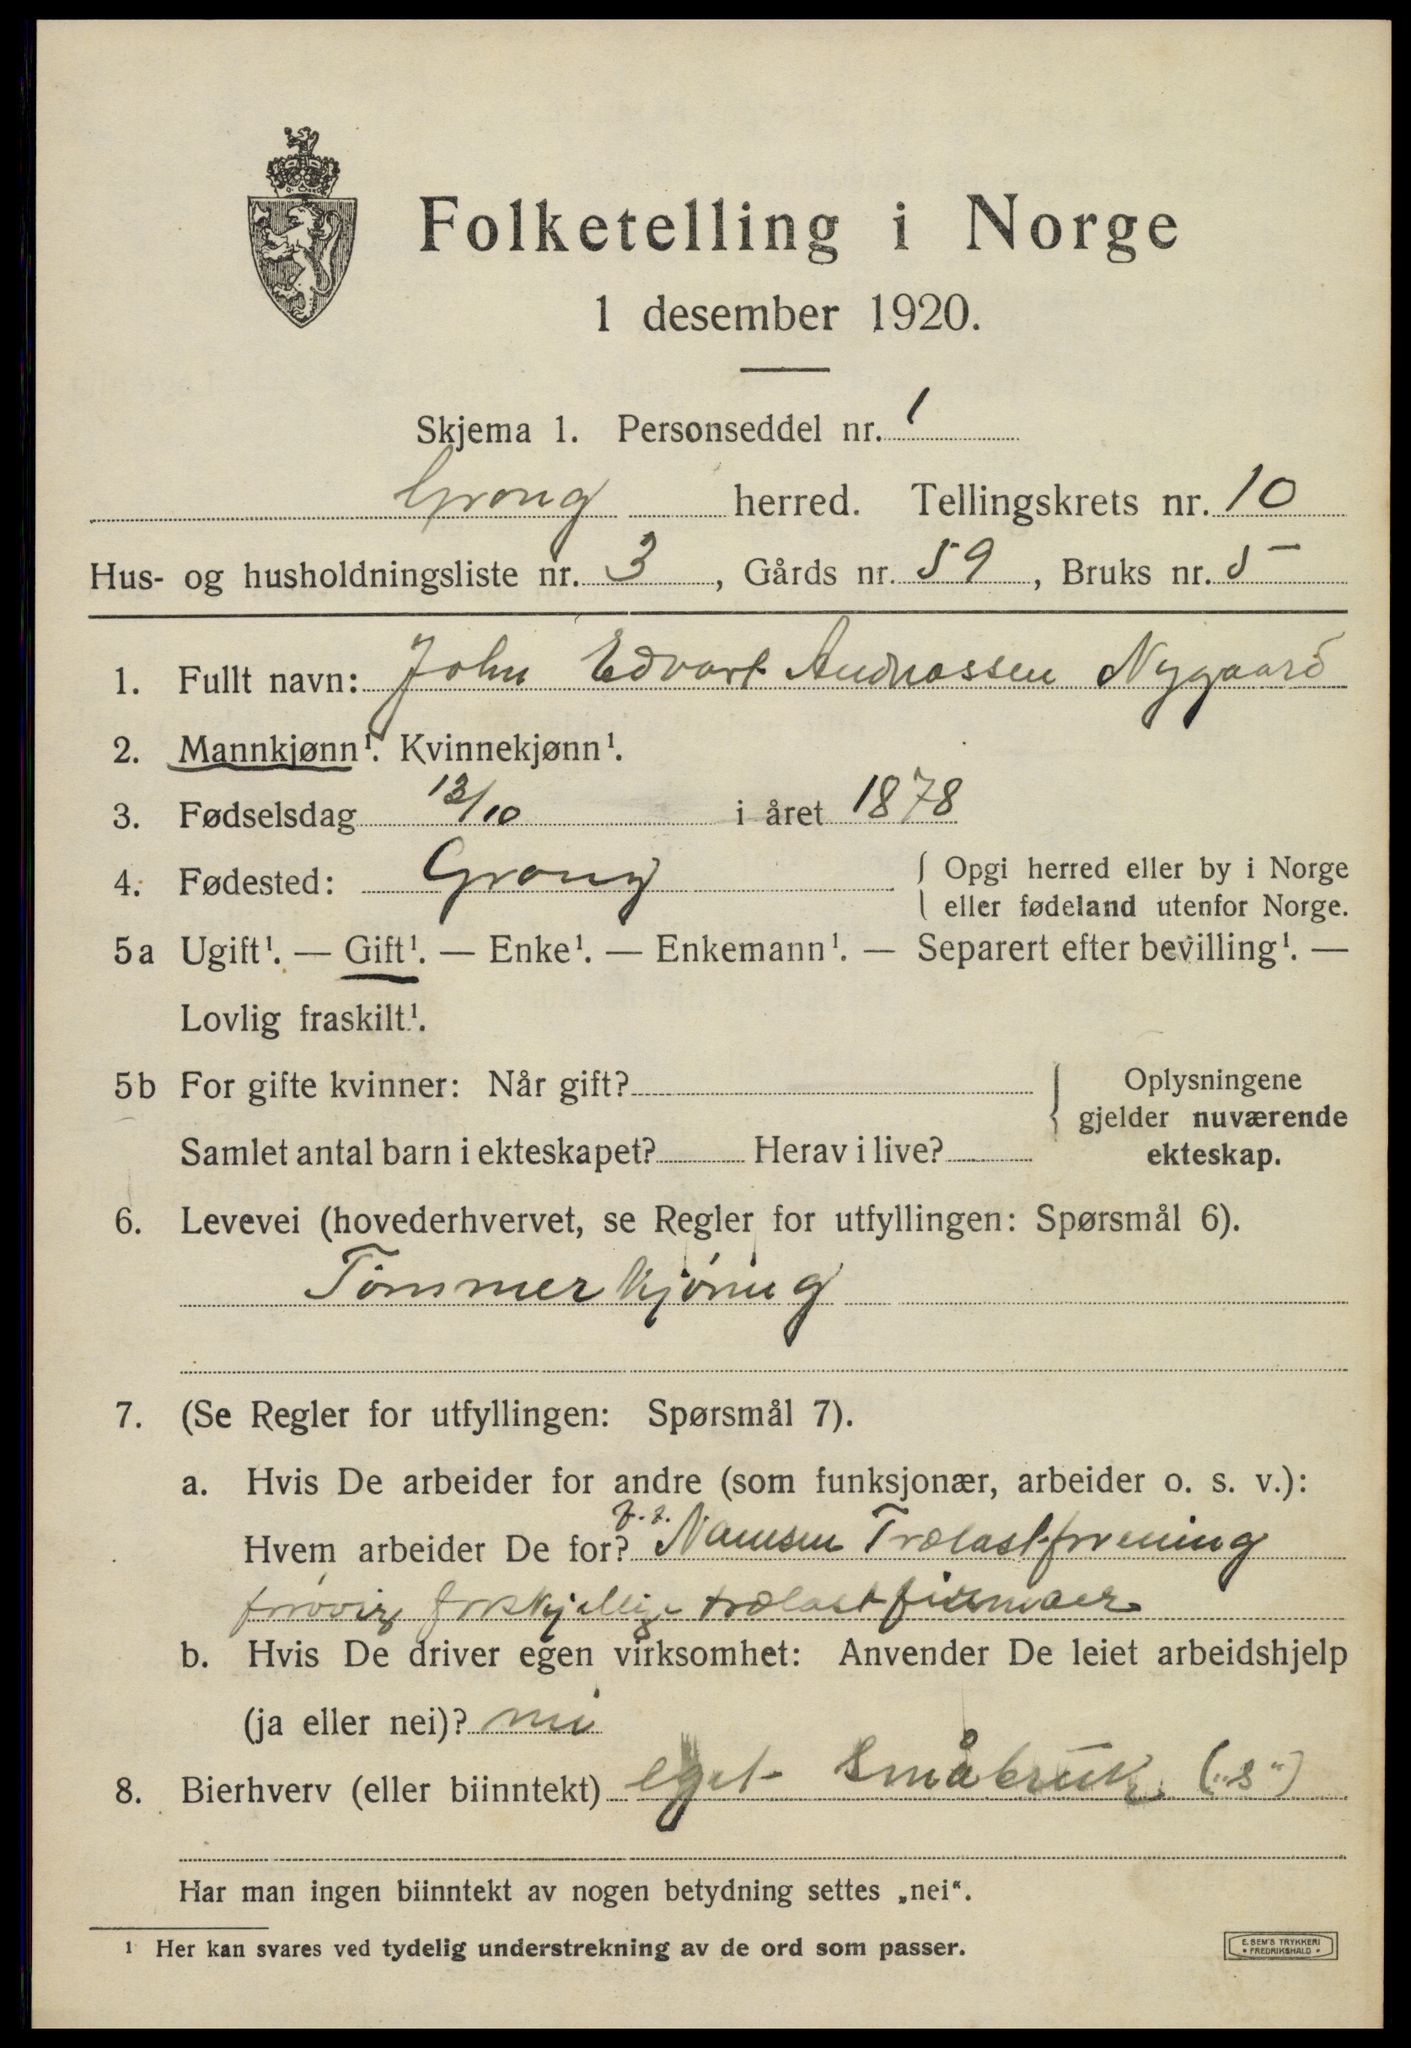 Folketelling i Norge
1 desember 1920.
Skjema 1. Personseddel nr. 1
Grong herred. Tellingskrets nr. 10
Hus- og husholdningsliste nr. 3, Gårds nr. 59, Bruks nr. 5
1. Fullt navn: John Edvart Andreassen Nygaard
2. Mannkjønn¹. Kvinnekjønn¹.
3. Fødselsdag 12/10 i året 1878
4. Fødested: Grong { Opgi herred eller by i Norge
eller fødeland utenfor Norge.
5a Ugift¹. — Gift¹. — Enke¹. — Enkemann¹. — Separert efter bevilling¹. —
Lovlig fraskilt¹.
5b For gifte kvinner: Når gift? { Oplysningene
gjelder nuværende
Samlet antal barn i ekteskapet? Herav i live? ekteskap.
6. Levevei (hovederhvervet, se Regler for utfyllingen: Spørsmål 6).
Tømmerkjøring
7. (Se Regler for utfyllingen: Spørsmål 7).
a. Hvis De arbeider for andre (som funksjonær, arbeider o. s. v.):
Hvem arbeider De for? f.t. Namsen Trælastforening
forøvrig forskjellige trælastfirmaer
b. Hvis De driver egen virksomhet: Anvender De leiet arbeidshjelp
(ja eller nei)? nei
8. Bierhverv (eller biinntekt) eget småbruk („s“)
Har man ingen biinntekt av nogen betydning settes „nei“.
¹ Her kan svares ved tydelig understrekning av de ord som passer.
E. SEM'S TRYKKERI
• FREDRIKSHALD •